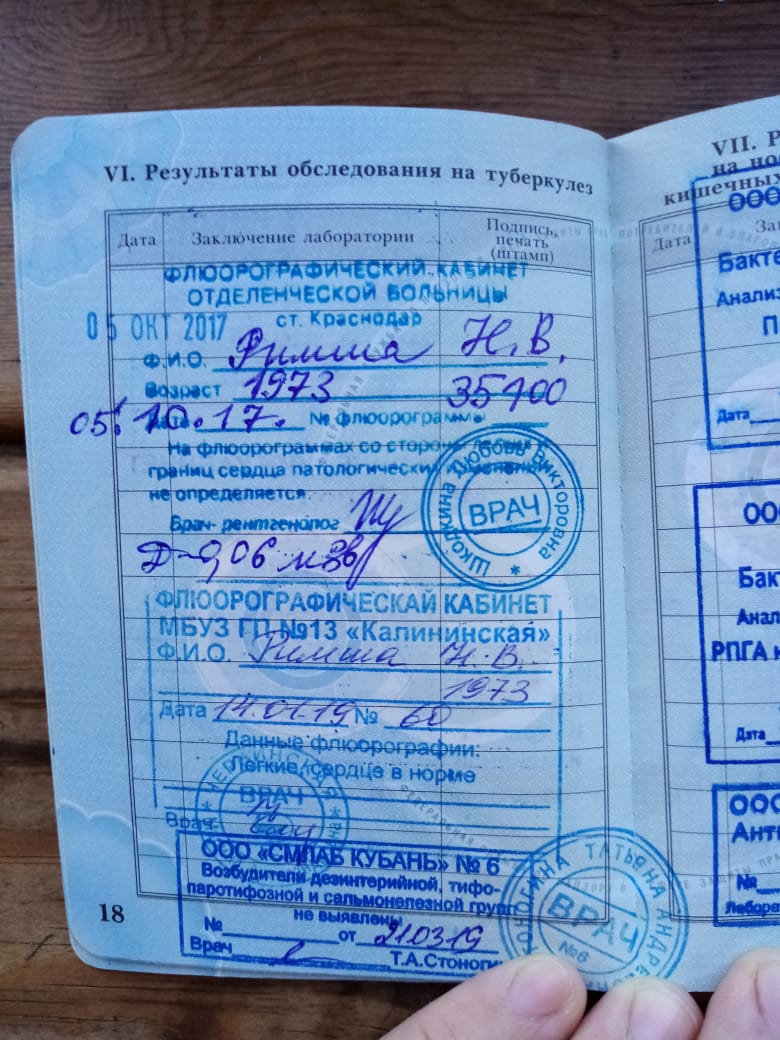 VI. Результаты обследования на туберкулез
Дата
Заключение лаборатории
Подпись,
печать
(штамп)
ФЛЮОРОГРАФИЧЕСКИЙ КАБИНЕТ
ОТДЕЛЕНЧЕСКОЙ БОЛЬНИЦЫ
05 ОКТ 2017 ст. Краснодар
Ф.И.О. Римша Н.В.
Возраст 1973 35100
05.10.17. № флюорограммы
На флюорограммах со стороны
границ сердца патологических изменений
не определяется.
Врач- рентгенолог
Шкодкина Любовь Викторовна
ВРАЧ
Д-0,06 мЗв
ФЛЮОРОГРАФИЧЕСКАЙ КАБИНЕТ
МБУЗ ГП №13 «Калининская»
Ф.И.О. Римша Н.В.
1973
Дата 14.01.19 № 60
Данные флюорографии:
Легкие, сердце в норме
ВРАЧ
Врач
ООО «СМЛАБ КУБАНЬ» № 6
Возбудители дезинтерийной, тифо-
паратифозной и сальмонелезной групп
не выявлены
№ от 210319
Врач Т.А.Стоноги
ТАТЬЯНА
ВРАЧ
№6
18
VII. Р
на но
кишечных
Дата
За
ООО
Бакте
Анализ
П
Дата
ООО
Бак
Анал
РПГА
Дата
ООО
Анти
№
Лабора